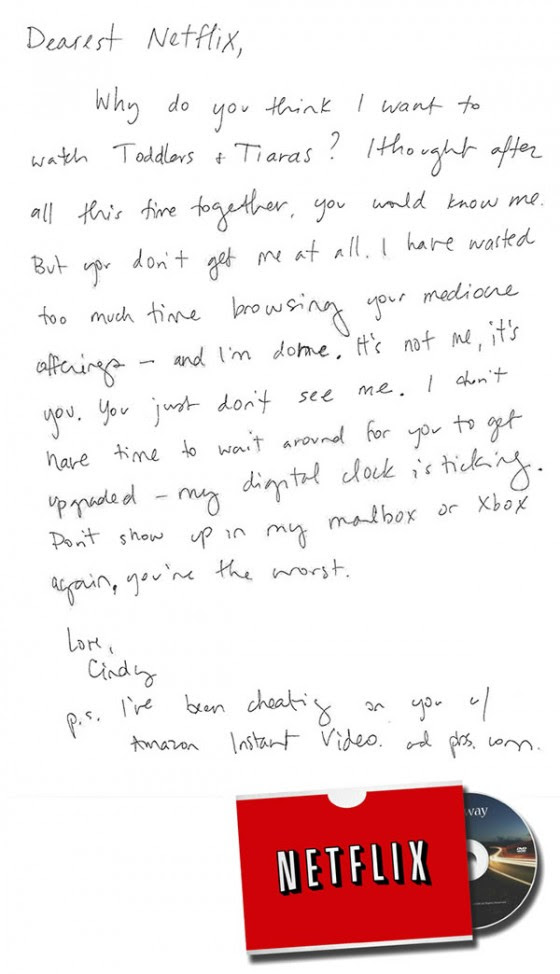 Dearest Netflix,
Why do you think I want to
watch Toddlers + Tiaras? I thought after
all this time together, you would know me.
But you don't get me at all. I have wasted
too much time browsing your mediocre
offerings – and I'm done. It's not me, it's
you. You just don't see me. I don't
have time to wait around for you to get
upgraded – my digital clock is ticking.
Don't show up in my mailbox or Xbox
again, you're the worst.
Love,
Cindy
p.s. I've been cheating on you w/
Amazon Instant Video. and pbs. com.
way
NETFLIX
DVD